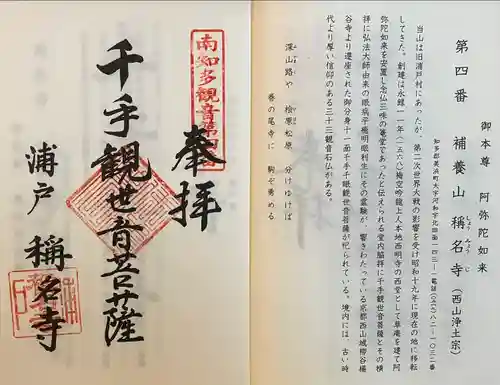 御本尊 阿弥陀如来
第四番 補養山 稱名寺(西山浄土宗)
しょうみょうじ
知多郡美浜町大字河和字北田面一四三―一
当山は旧浦戸村にあったが、第二次世界大戦の影響を受け昭和十九年に現在の地に移転
してきた。創建は永禄一一年(一五六八)梅空吟龍上人本地西明寺の西堂として草庵を建て阿
弥陀如来を安置し念仏三昧の庵室であったと伝えられる堂内脇拝に千手観世音菩薩とその横
拝に弘法大師由来の眼病平癒明眼利生にその霊験が、響きわたっている京都西山城柳谷楊
谷寺より遷座された御分身十一面千手千眼観世音菩薩が祀られている。境内には、古い時
代より厚い信仰のある三十三観音石仏がある。
深山路や 桧原松原 分けゆけば
巻の尾寺に 駒ぞ勇める
南知多観音第四
奉拝
千手観世音菩薩
浦戸 稱名寺